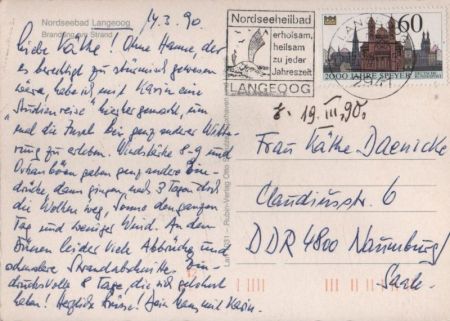 Nordseebad Langeoog
Brandung am Strand
14.3.90.
Liebe Käthe! Ohne Hanne, der
es derzeitig zu stürmisch gewesen
wäre, habe ich mit Karin eine
„Studienreise" hierher gemacht, um
mal die Insel bei ganz anderer Witte-
rung zu erleben. Windstärke 8-9 und
Orkanböen gaben ganz andere Ein-
drücke, dann gingen nach 3 Tagen doch
die Wolken weg, Sonne den ganzen
Tag und weniger Wind. An den
Dünen leider viele Abbrüche und
schmalere Strandabschnitte. Ein-
drucksvolle 8 Tage, die sich gelohnt
haben! Herzliche Grüsse! Dein Hans mit Karin.
Nordseeheilbad
erholsam,
heilsam
zu jeder
Jahreszeit
LANGEOOG
LANGEOOG
2941
60
2000 JAHRE SPEYER
DEUTSCHE
BUNDESPOST
19. III. 90.
Frau Käthe Daenicke
Claudiusstr. 6
DDR 4800 Naumburg/
Saale.
Rubin-Verlag Otto